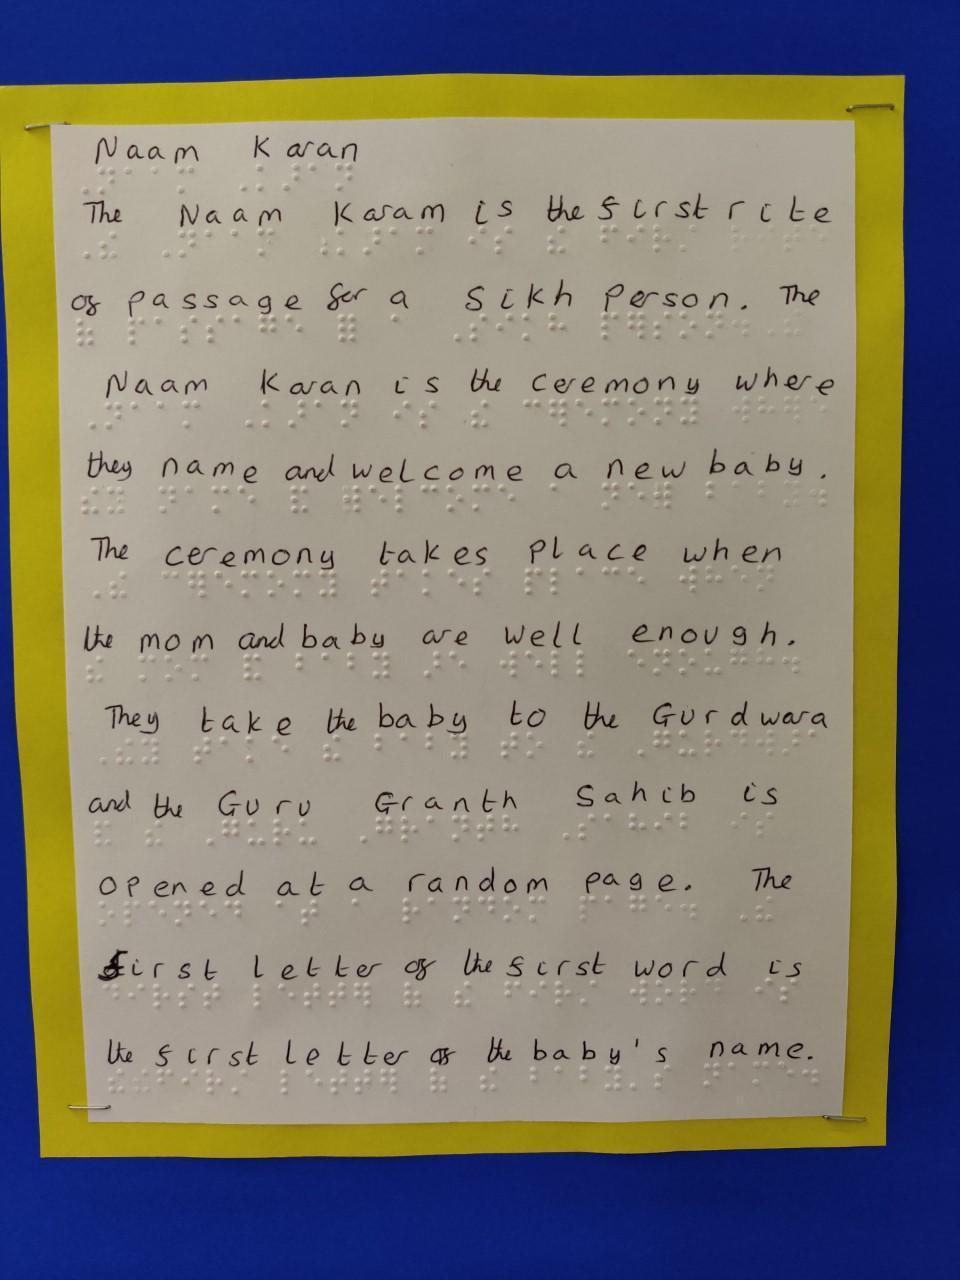 Naam Karan
The Naam Karam is the first rite
of passage for a Sikh person. The
Naam Karan is the ceremony where
they name and welcome a new baby.
The ceremony takes place when
the mom and baby are well enough.
They take the baby to the Gurdwara
and the Guru Granth Sahib is
opened at a random page. The
first letter of the first word is
the first letter of the baby's name.